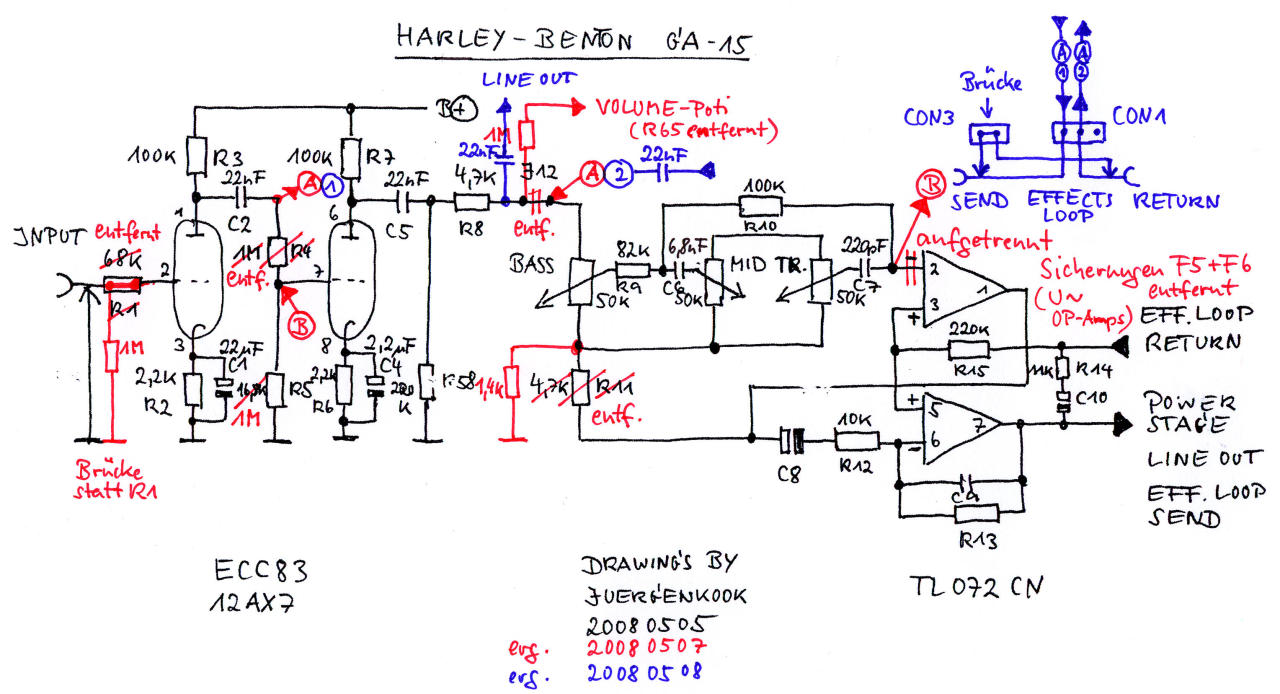 HARLEY-BENTON GA-15
LINE OUT
B+
1M
VOLUME-Poti
(R65 entfernt)
Brücke
CON3
CON1
A
1
A
2
SEND
EFFECTS
LOOP
RETURN
100K
R3
100K
R7
22nF
C2
A 1
22nF
C5
4,7K
R8
22nF
J12
entf.
A 2
22nF
100K
R10
B
aufgetrennt
INPUT
entfernt
68K
R1
1
2
3
1M
R4
entf.
B
6
7
8
BASS
50K
82K
R9
6,8nF
C6
50K
MID
TR.
50K
220pF
C7
2
3
+
1
Sicherungen F5+F6
entfernt
(U~
OP-Amps)
EFF. LOOP
RETURN
1M
2,2K
R2
22µF
C1
1M
R5
2,2K
R6
2,2µF
C4
R58
1,4K
4,7K
R11
entf.
220K
R15
R14
C10
POWER
STAGE
LINE OUT
EFF. LOOP
SEND
C8
10K
R12
+
5
6
-
7
C9
R13
Brücke
statt R1
ECC83
12AX7
DRAWING'S BY
JUERGENKOOK
20080505
erg. 20080507
erg. 20080508
TL072CN